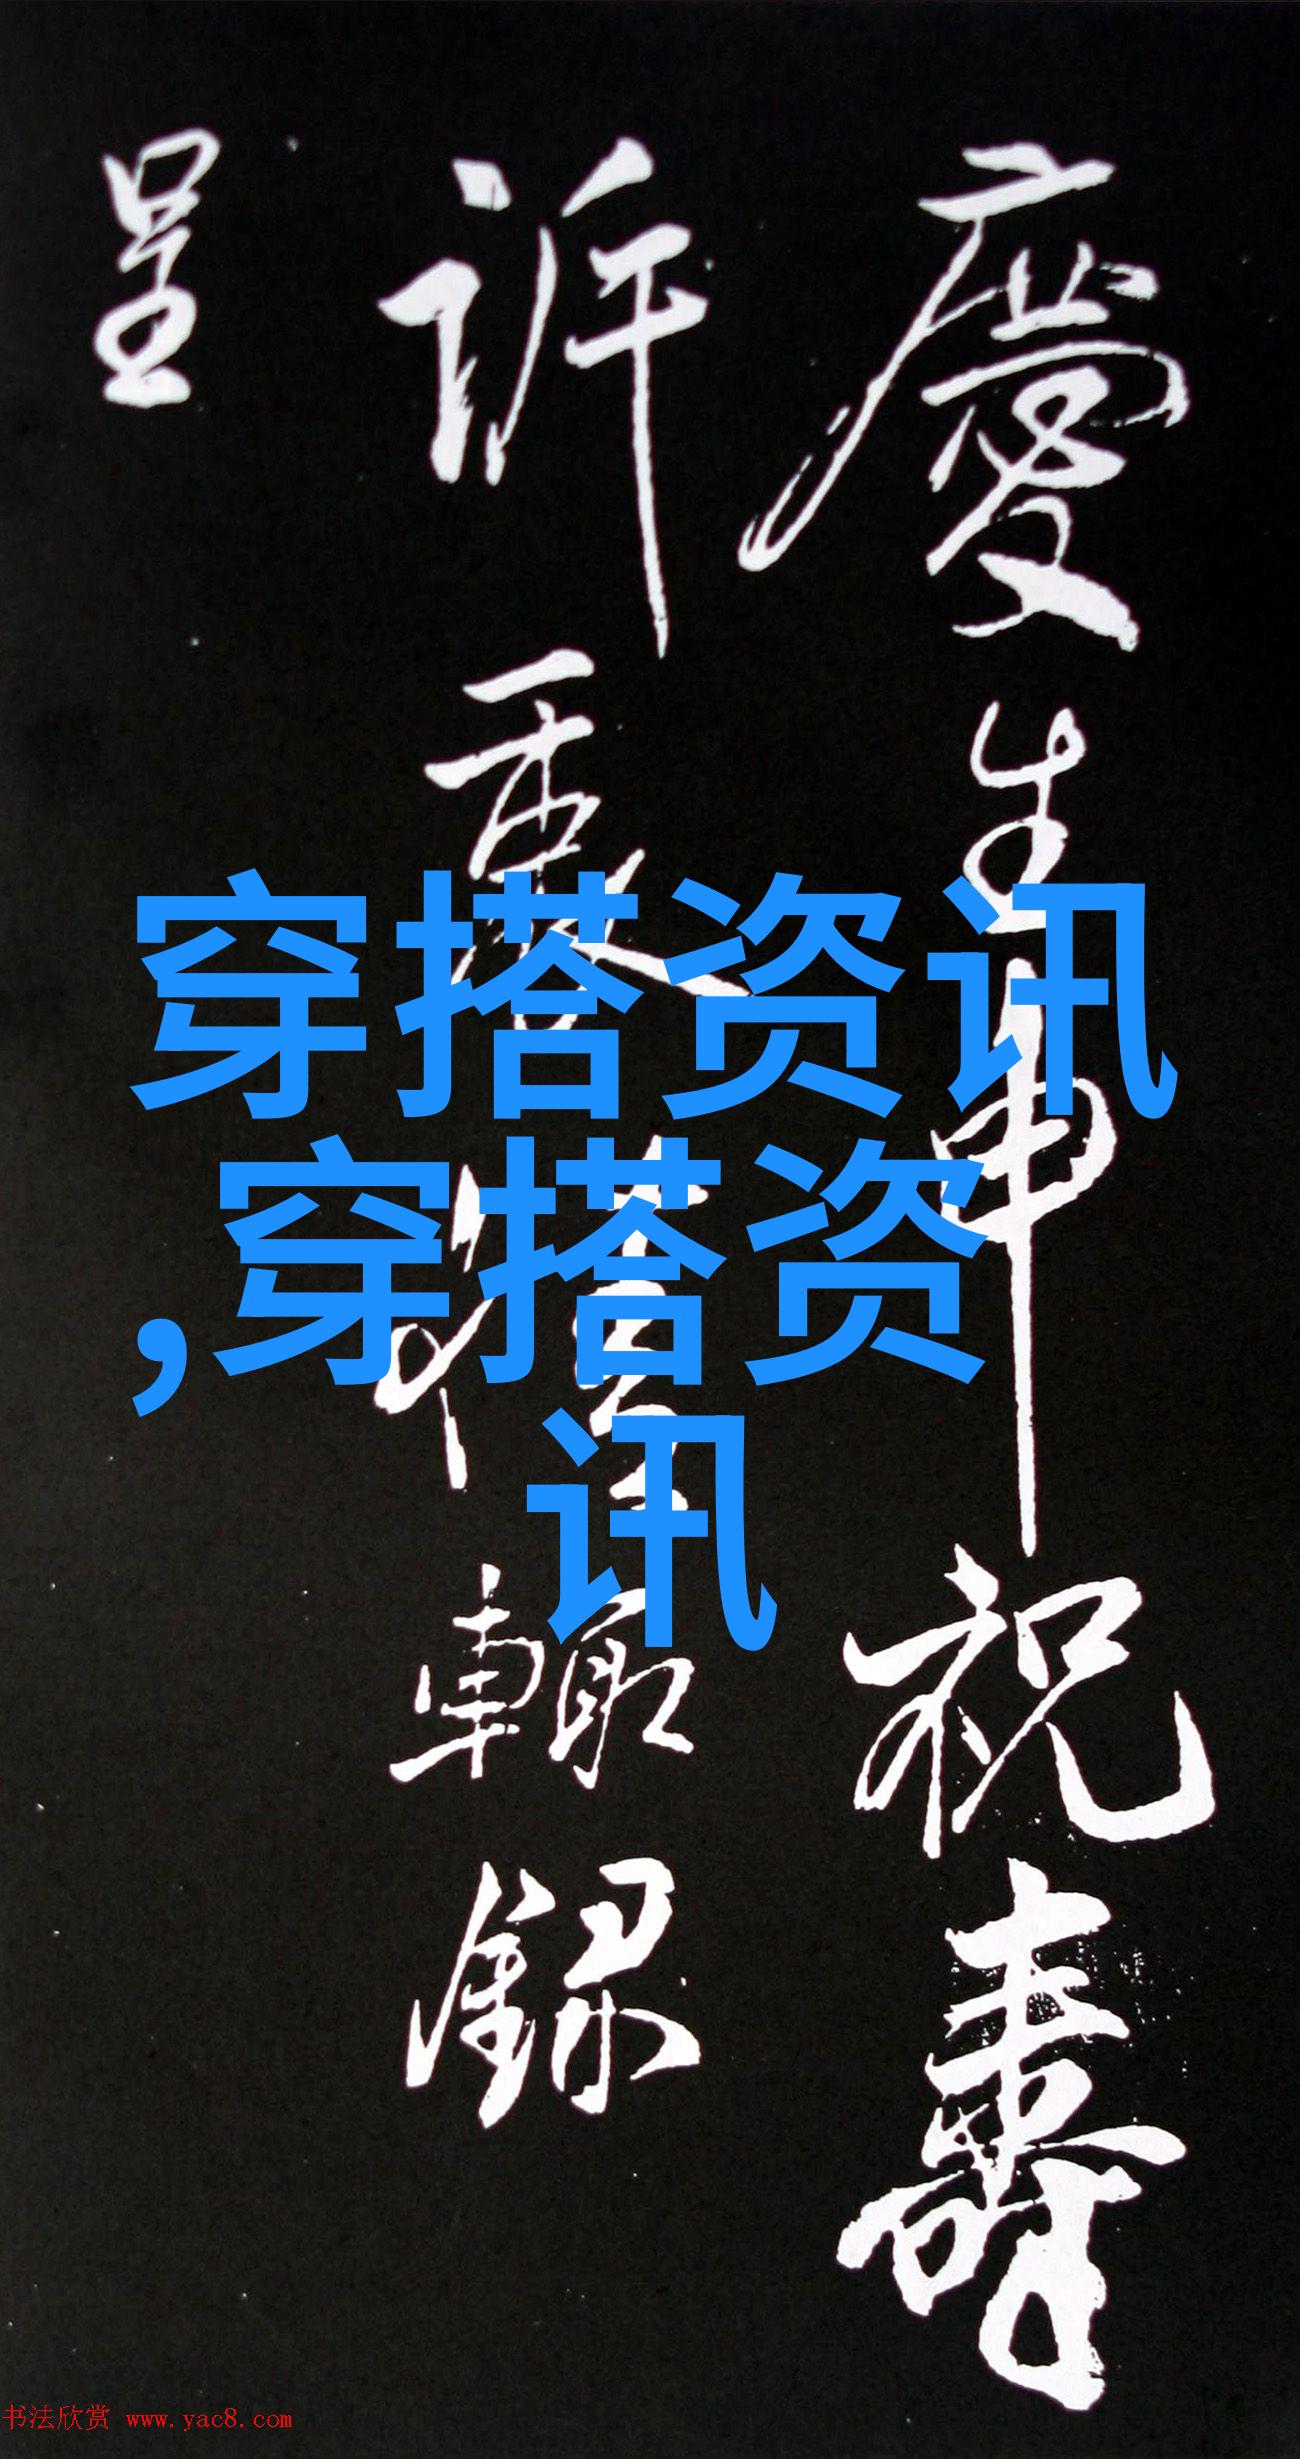 慶生申祝壽
訢
輙録
呈
穿搭资讯
,穿搭资
讯
书法欣赏 www.yac8.com